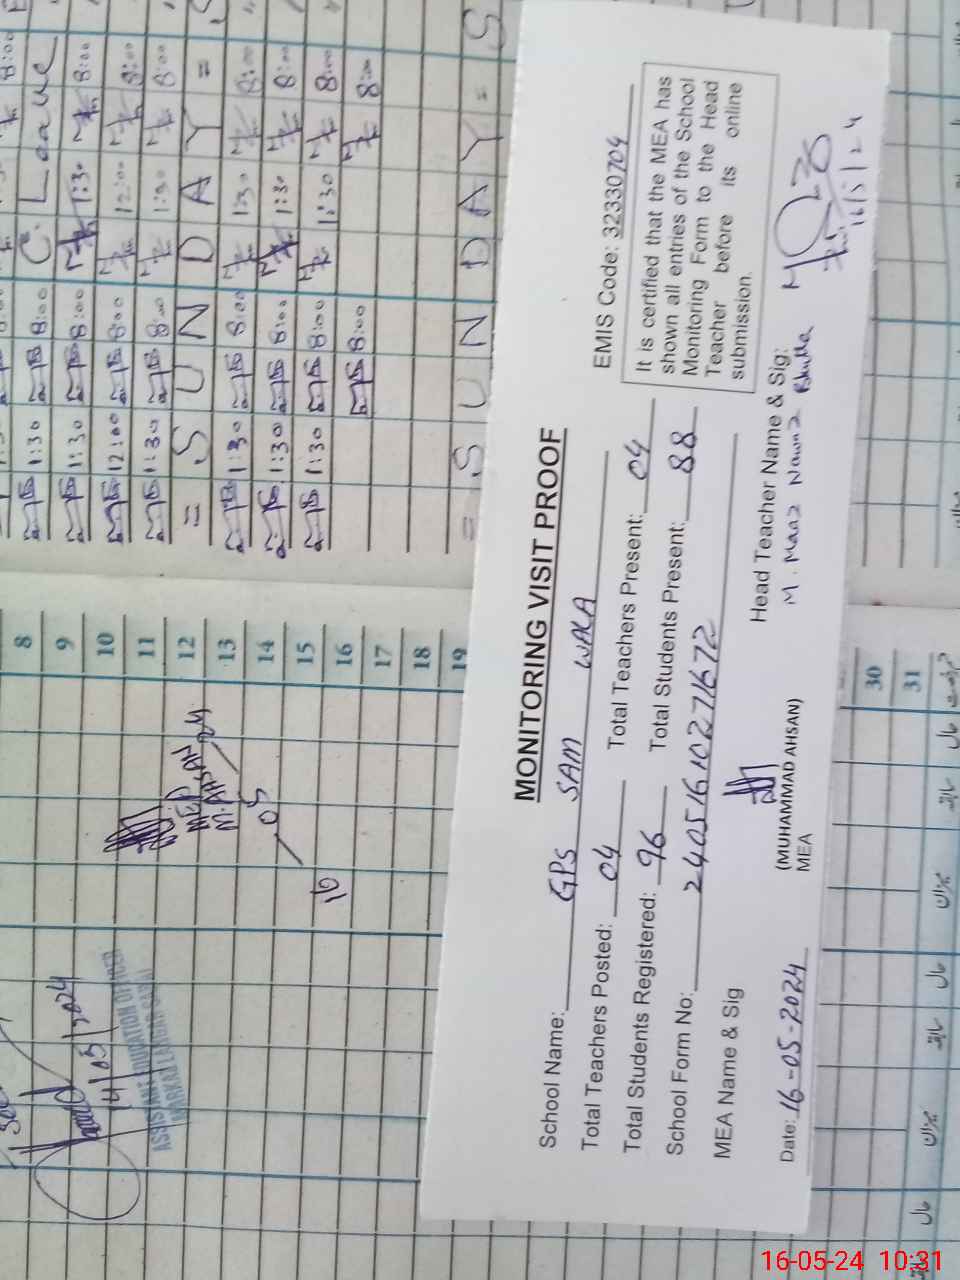 MONITORING VISIT PROOF
School Name: GPS SAM WALA
EMIS Code: 32330704
Total Teachers Posted: 04 Total Teachers Present: 04
Total Students Registered: 96 Total Students Present: 88
School Form No: 24051610271672
It is certified that the MEA has
shown all entries of the School
Monitoring Form to the Head
Teacher before its online
submission.
MEA Name & Sig
(MUHAMMAD AHSAN)
MEA
Head Teacher Name & Sig:
M. Maaz Nawaz Bhutta
16/5/24
Date: 16-05-2024
C. Leave
1:30 8:00
1:30 8:00 1:30 8:00
12:00 8:00 12:00 8:00
1:30 8:00 1:30 8:00
= SUNDAY =
1:30 8:00 1:30 8:00
1:30 8:00 1:30 8:00
1:30 8:00 1:30 8:00
8:00 8:00
= SUNDAY = S
8
9
10
11
12
13
14
15
16
17
18
19
30
31
M. AHSAN
16/05/24
14/05/2024
ASSISTANT EDUCATION OFFICER
میزان
سابقہ
حال
میزان
سابقہ
حال
16-05-24 10:31